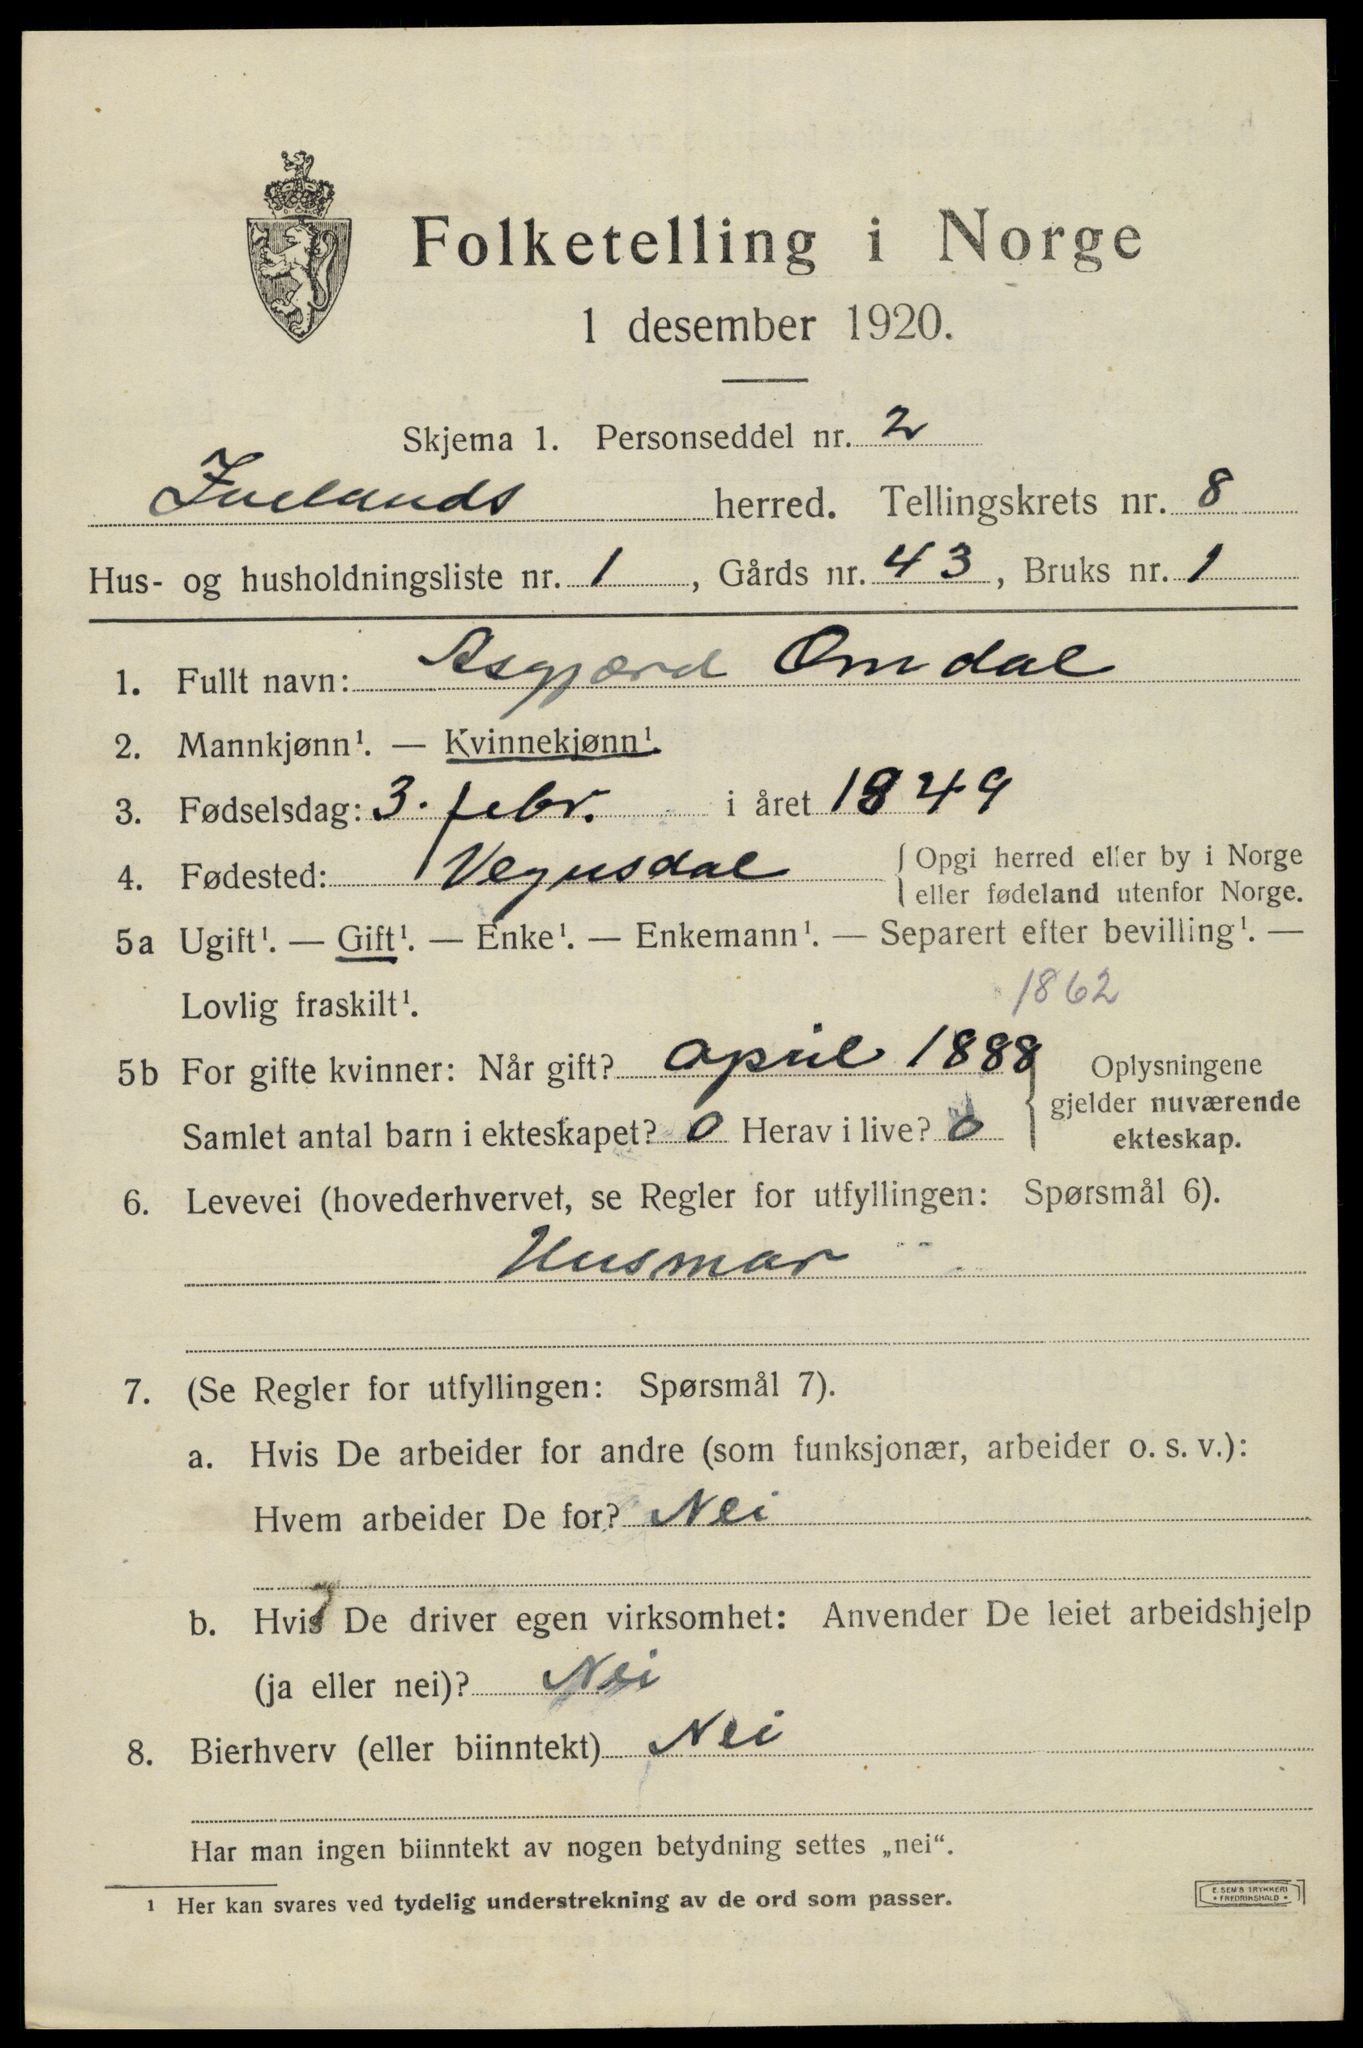 Folketelling i Norge
1 desember 1920.
Skjema 1. Personseddel nr. 2
Ivelands herred. Tellingskrets nr. 8
Hus- og husholdningsliste nr. 1, Gårds nr. 43, Bruks nr. 1
1. Fullt navn: Asgjærd Omdal
2. Mannkjønn¹. — Kvinnekjønn¹.
3. Fødselsdag: 3. febr. i året 1849
4. Fødested: Vegusdal { Opgi herred eller by i Norge
eller fødeland utenfor Norge.
5a Ugift¹. — Gift¹. — Enke¹. — Enkemann¹. — Separert efter bevilling¹. —
Lovlig fraskilt¹. 1862
5b For gifte kvinner: Når gift? april 1888 } Oplysningene
gjelder nuværende
Samlet antal barn i ekteskapet? 0 Herav i live? 0 ekteskap.
6. Levevei (hovederhvervet, se Regler for utfyllingen: Spørsmål 6).
Husmor
7. (Se Regler for utfyllingen: Spørsmål 7).
a. Hvis De arbeider for andre (som funksjonær, arbeider o. s. v.):
Hvem arbeider De for? Nei
b. Hvis De driver egen virksomhet: Anvender De leiet arbeidshjelp
(ja eller nei)? Nei
8. Bierhverv (eller biinntekt) Nei
Har man ingen biinntekt av nogen betydning settes „nei“.
¹ Her kan svares ved tydelig understrekning av de ord som passer.
E. SEM'S TRYKKERI
• FREDRIKSHALD •